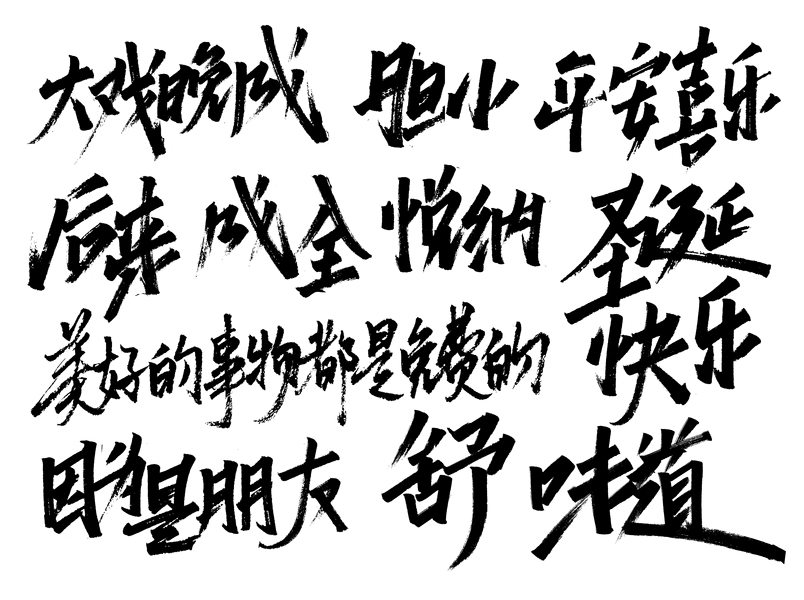 大戏晚成 胆小 平安喜乐
后来 成全 悦纳 圣诞快乐
美好的事物都是免费的
因为是朋友 舒 味道